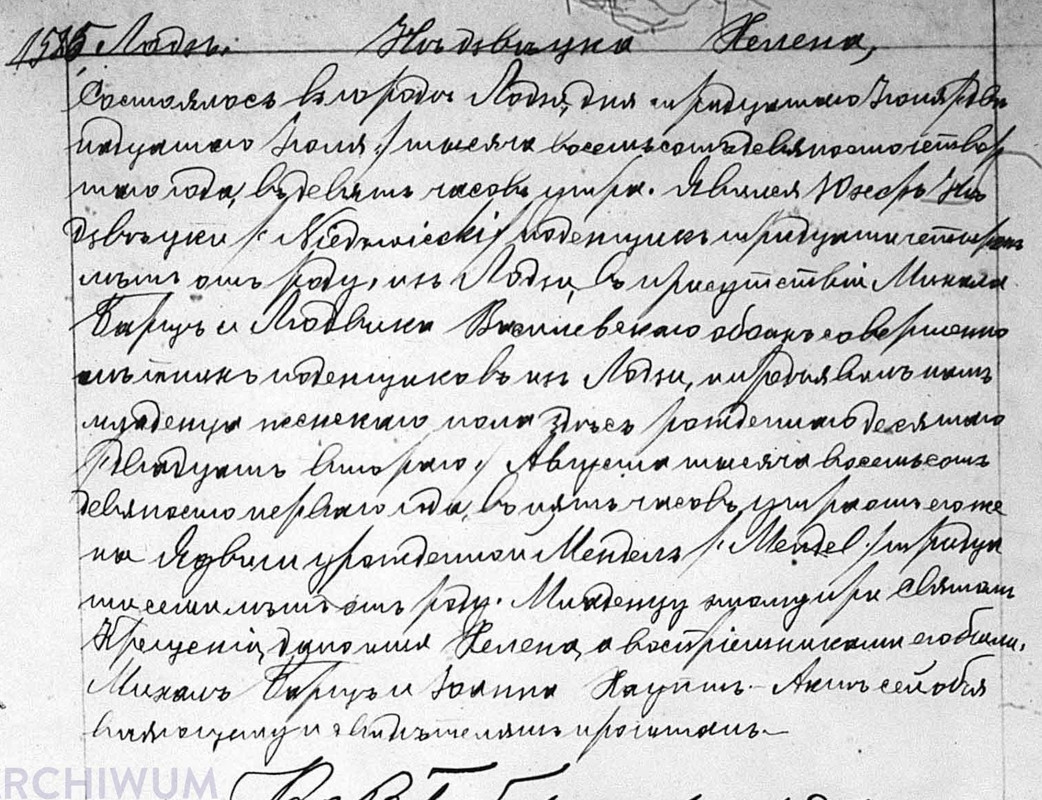 1585 Лодзь. Недзвецка Хелена,
Состоялось въ городѣ Лодзи, дня тридцатаго Іюня /две
надцатаго Іюля/ тысяча восемьсотъ девяносто четвер
таго года, въ девять часовъ утра. Явился Юзефъ Не
дзвѣцки /:Niedzwiecki/ поденщикъ тридцати четырехъ
лѣтъ отъ роду, изъ Лодзи, въ присутствіи Михала
и Людвика Василевскаго обоихъ совершенно
лѣтнихъ поденщиковъ изъ Лодзи, и предъявилъ намъ
младенца женскаго пола здѣсь рожденнаго десятаго
/двадцать втораго/ Августа тысяча восемьсотъ
девяносто перваго года, въ пять часовъ утра отъ его же
ны Ядвиги урожденной Мендель /:Mendel:/ тридца
ти семи лѣтъ отъ роду. Младенцу этому при Святомъ
Крещеніи, дано имя Хелена, а воспріемниками его были,
Михалъ и Іоанна Актъ сей объя
вляющему и свидѣтелямъ прочитанъ.—
ARCHIWUM